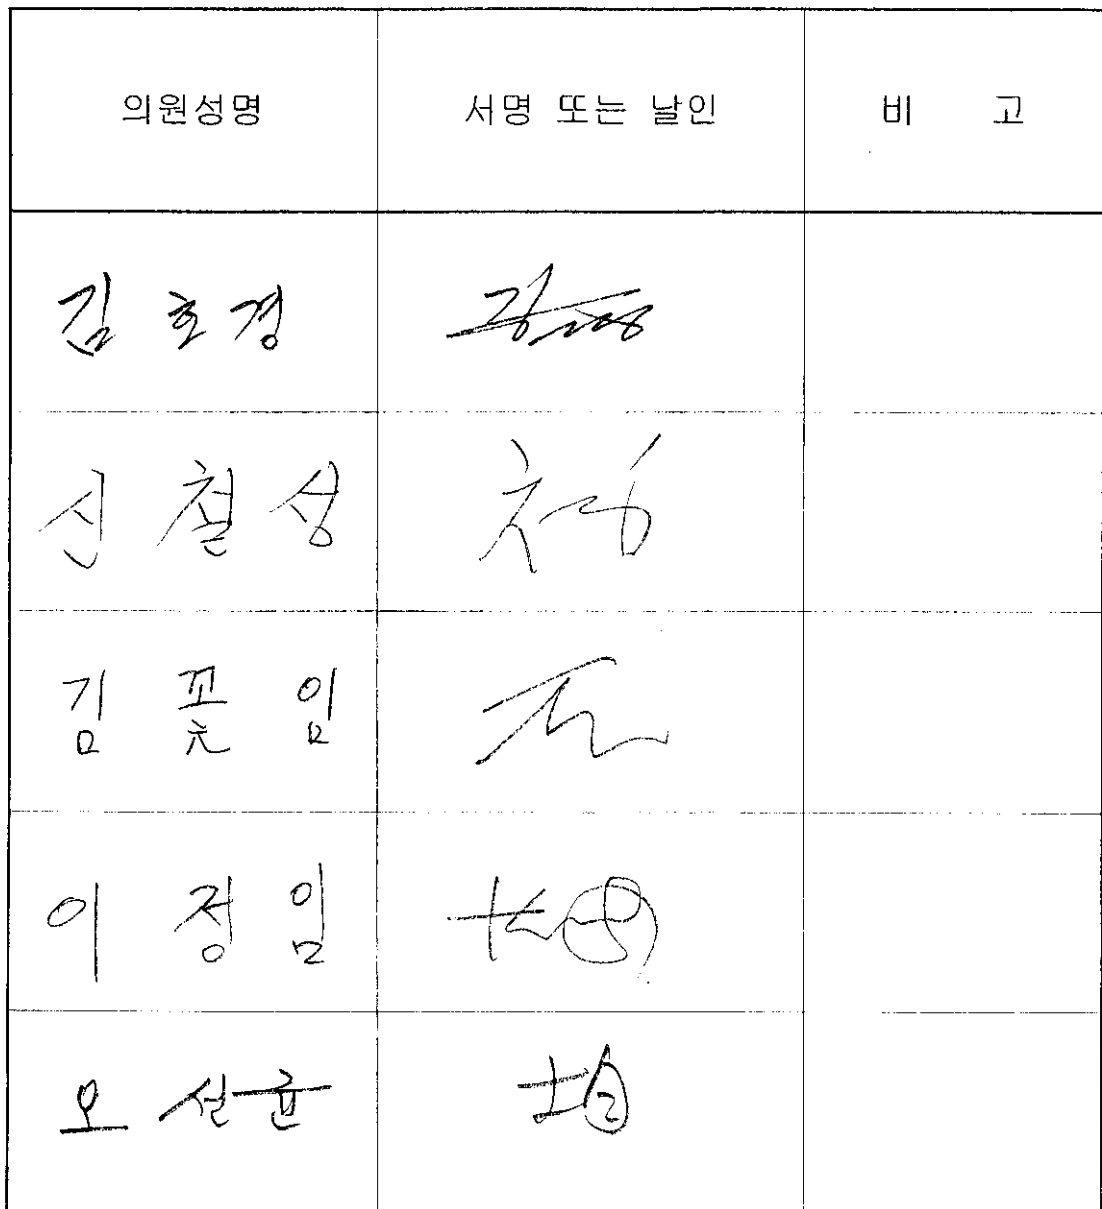 의원성명 서명 또는 날인 비 고
김호경
신철성
김꽃임
이정임
오선균